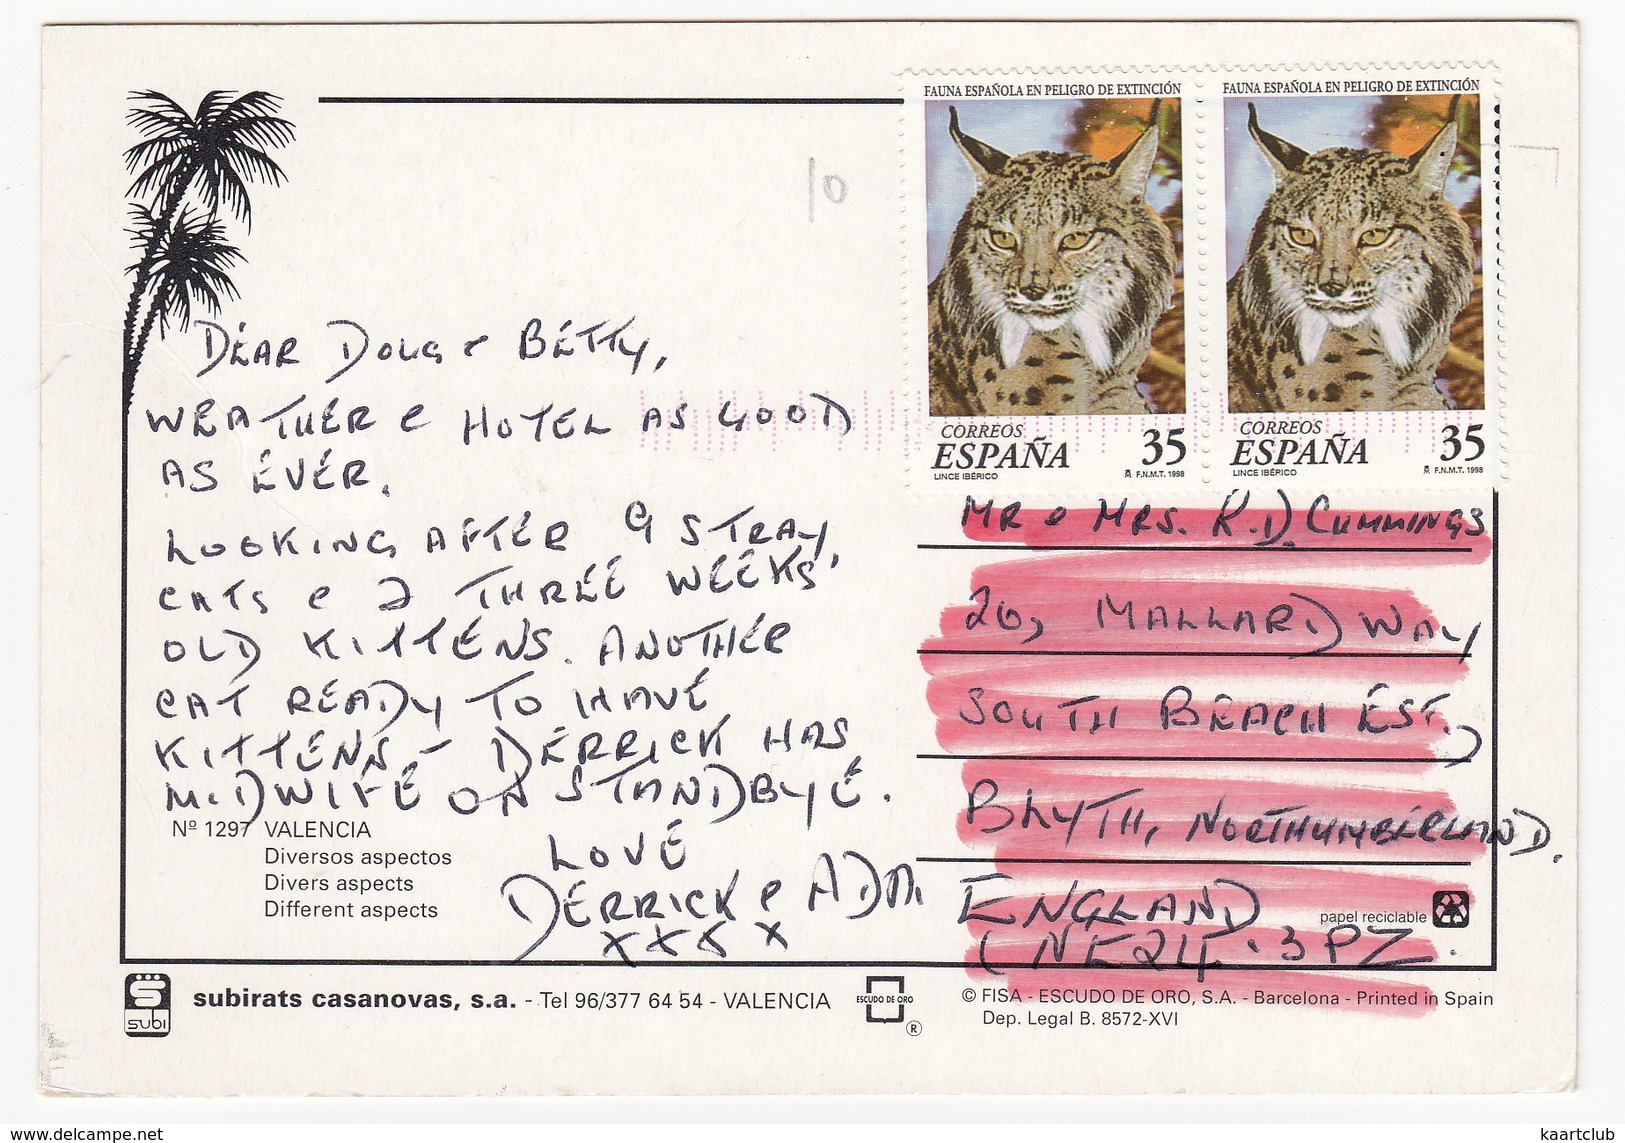 FAUNA ESPAÑOLA EN PELIGRO DE EXTINCIÓN
CORREOS
ESPAÑA 35
LINCE IBÉRICO F.N.M.T. 1998
FAUNA ESPAÑOLA EN PELIGRO DE EXTINCIÓN
CORREOS
ESPAÑA 35
LINCE IBÉRICO F.N.M.T. 1998
10
DEAR DOUG & BETTY,
WEATHER & HOTEL AS GOOD
AS EVER.
LOOKING AFTER 9 STRAY
CATS & 2 THREE WEEKS'
OLD KITTENS. ANOTHER
CAT READY TO HAVE
KITTENS - DERRICK HAS
MIDWIFE ON STANDBYE.
LOVE
DERRICK &
XXXX
Nº 1297 VALENCIA
Diversos aspectos
Divers aspects
Different aspects
MR & MRS. R.D. CUMMINGS
26, MALLARD WAY
SOUTH BEACH EST.,
BLYTH, NORTHUMBERLAND.
ENGLAND
NE24.3PZ.
papel reciclable
SUBI
subirats casanovas, s.a. - Tel 96/377 64 54 - VALENCIA
ESCUDO DE ORO
®
© FISA - ESCUDO DE ORO, S.A. - Barcelona - Printed in Spain
Dep. Legal B. 8572-XVI
www.delcampe.net
kaartclub